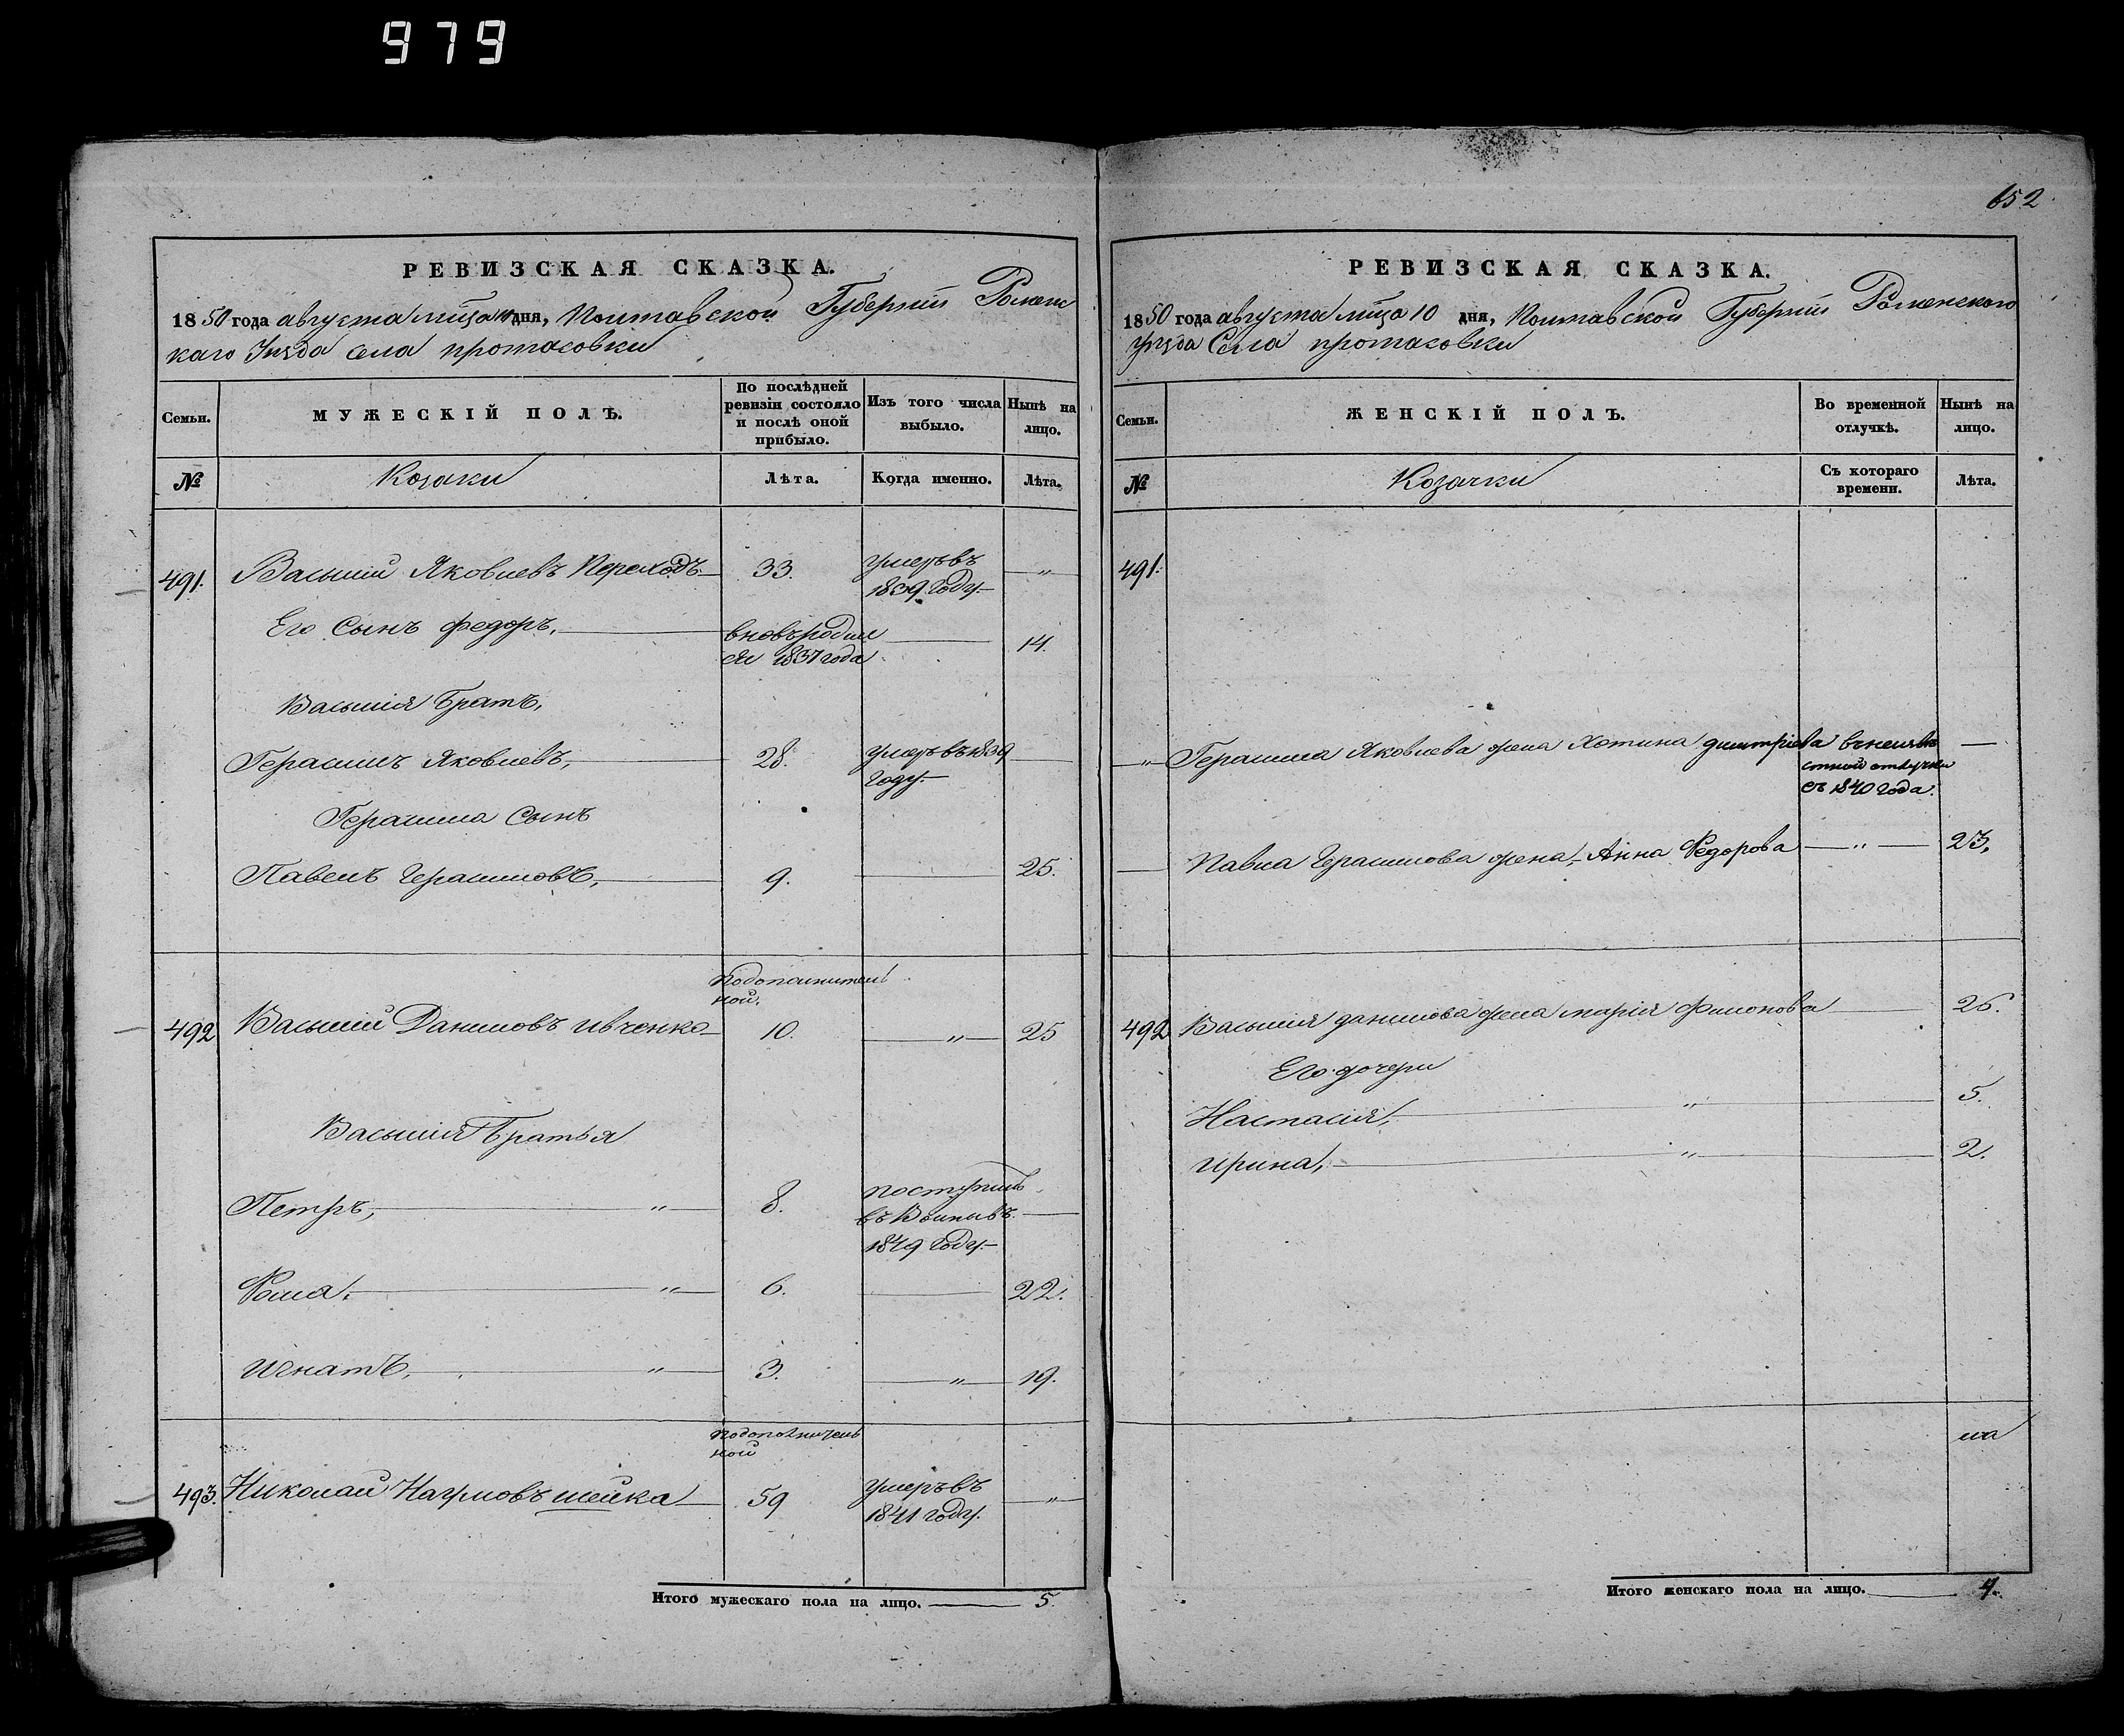 979
652
РЕВИЗСКАЯ СКАЗКА.
1850 года августа мца 10 дня, Полтавской Губернии Роменс
каго Уезда села протасовки
Семьи.
МУЖЕСКІЙ ПОЛЪ.
По послѣдней ревизіи состояло и послѣ оной прибыло.
Изъ того числа выбыло.
Нынѣ на лицо.
№
Козаки
Лѣта.
Когда именно.
Лѣта.
491. Василий Яковлевъ Переходъ 33. Умеръ въ „
1839 Году
Его Сынъ федоръ, вновь родил 14.
ся 1837 года
Василія Братъ,
Герасимъ Яковлевъ, 28. Умеръ въ 1839
Году.
Герасима Сынъ
Павелъ Герасимовъ, 9. 25.
Подополнител
ной.
492 Василий Даниловъ ивченко 10. „ 25
Василія Братья
Петръ, „ 8. поступилъ
въ
1849 Году
Фома, „ 6. 22.
Игнатъ, „ 3. „ 19.
подополнитель
ной
493. Николай Наумовъ шейка 59 Умеръ въ „
1841 году.
Итого мужескаго пола на лицо. 5.
РЕВИЗСКАЯ СКАЗКА.
1850 года августа мца 10 дня, Полтавской Губернии Роменского
уезда Села протасовки
Семьи.
ЖЕНСКІЙ ПОЛЪ.
Во временной отлучкѣ.
Нынѣ на лицо.
№
Козачки
Съ котораго времени.
Лѣта.
491.
„ Герасима Яковлева жена Хотина димтріева в неизвѣ
стной отлучки
съ 1840 года.
Павла Герасимова жена, Анна Федорова „ 23,
492 Василія данилова жена марія Филонова 26.
Его дочери
Настасія, „ 5.
ирина, „ 2.
Итого женскаго пола на лицо. 4.